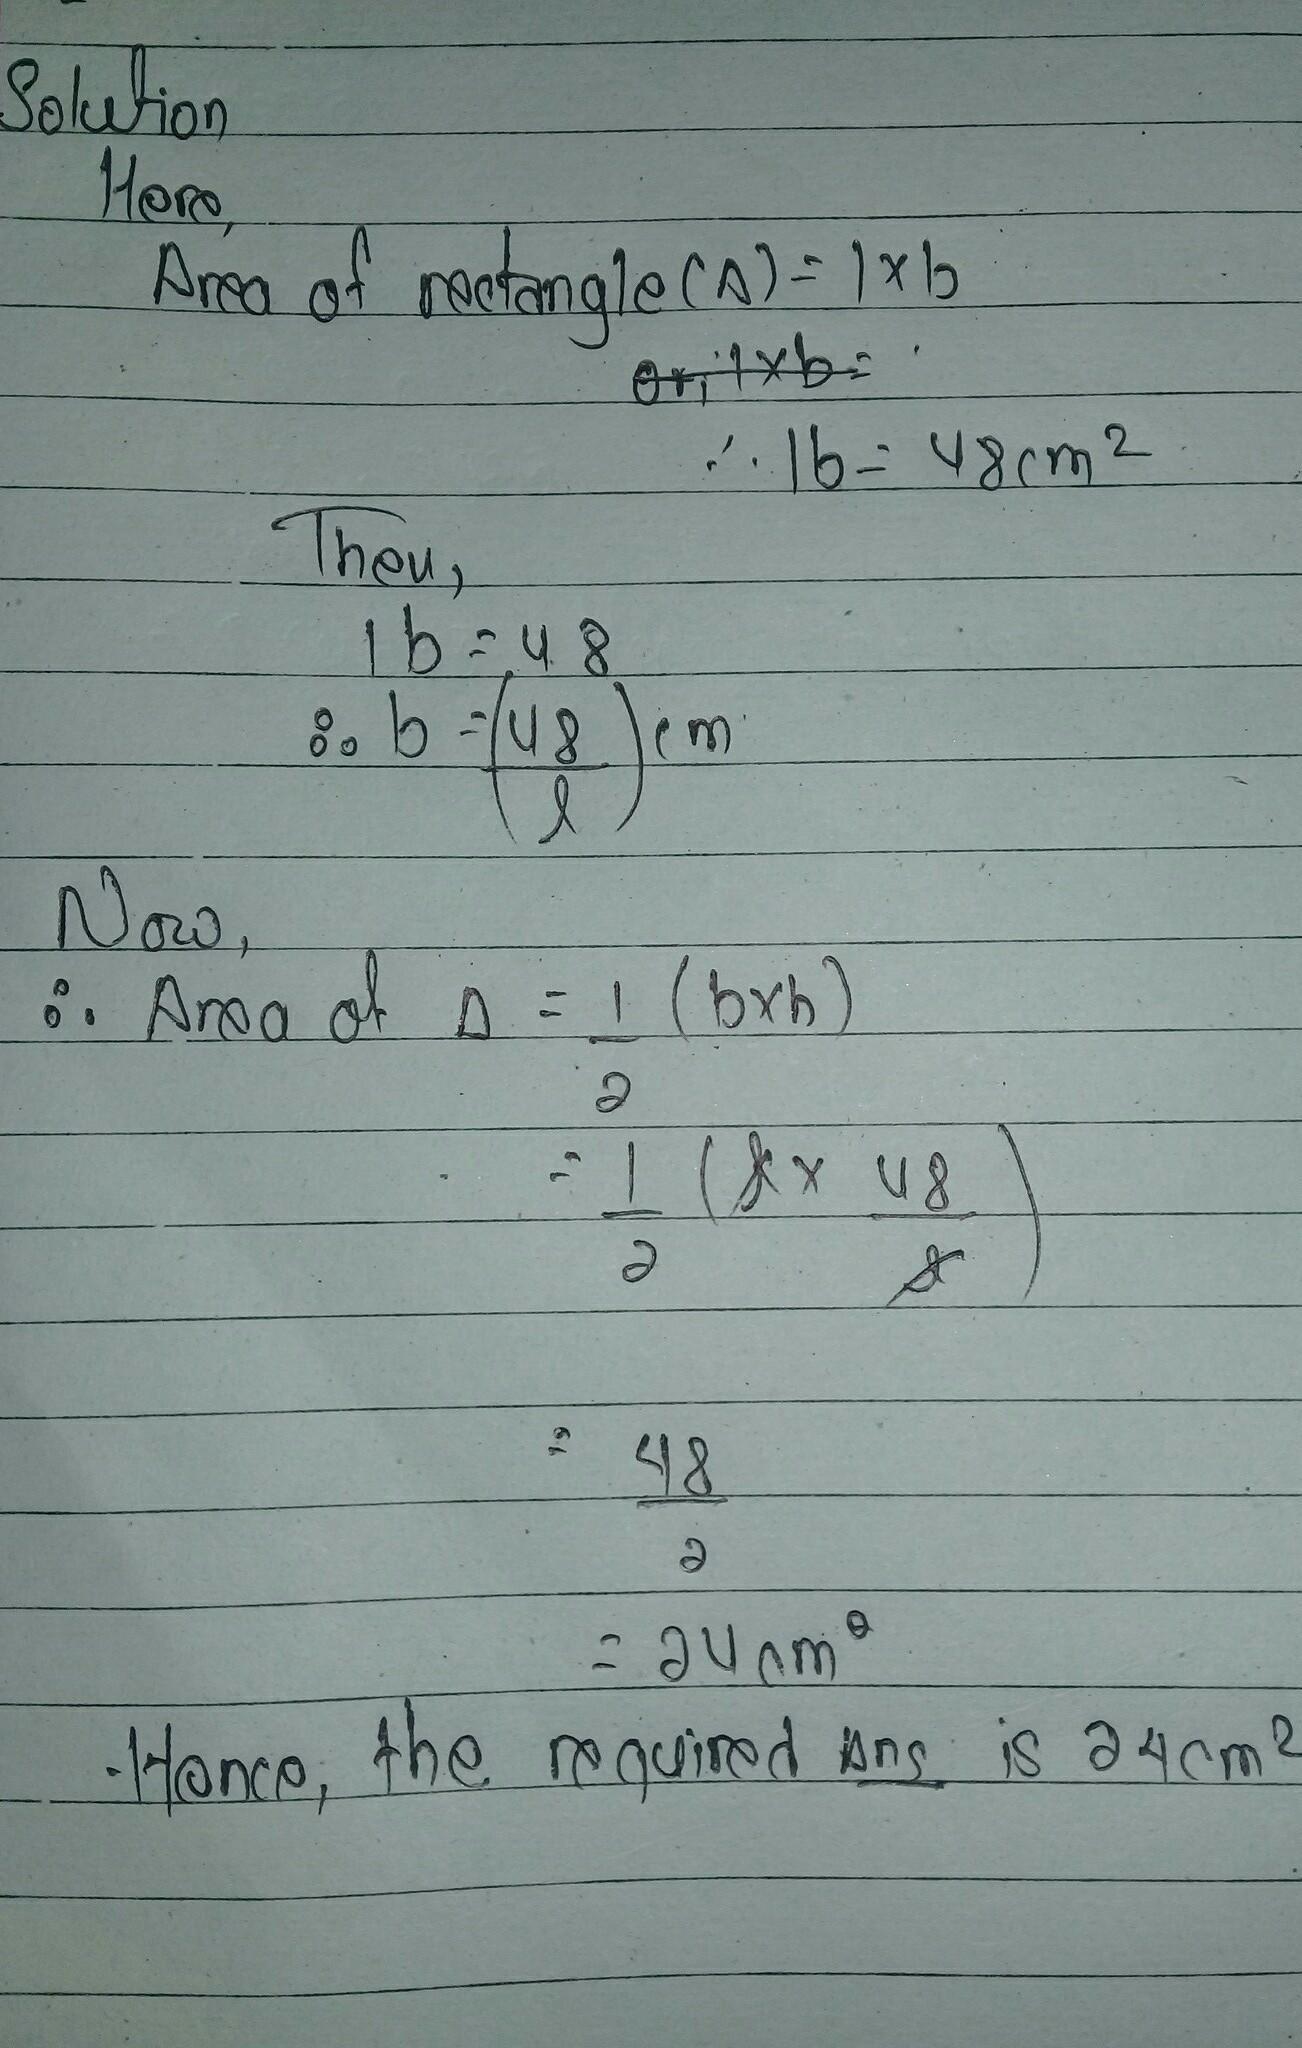 Solution
Here,
Area of rectangle (A) = l×b
or, l×b =
∴ lb = 48cm²
Then,
lb = 48
∴ b = (48/l) cm
Now,
∴ Area of Δ = 1/2 (b×h)
= 1/2 (l × 48/l)
= 48/2
= 24cm²
Hence, the required Ans is 24cm²